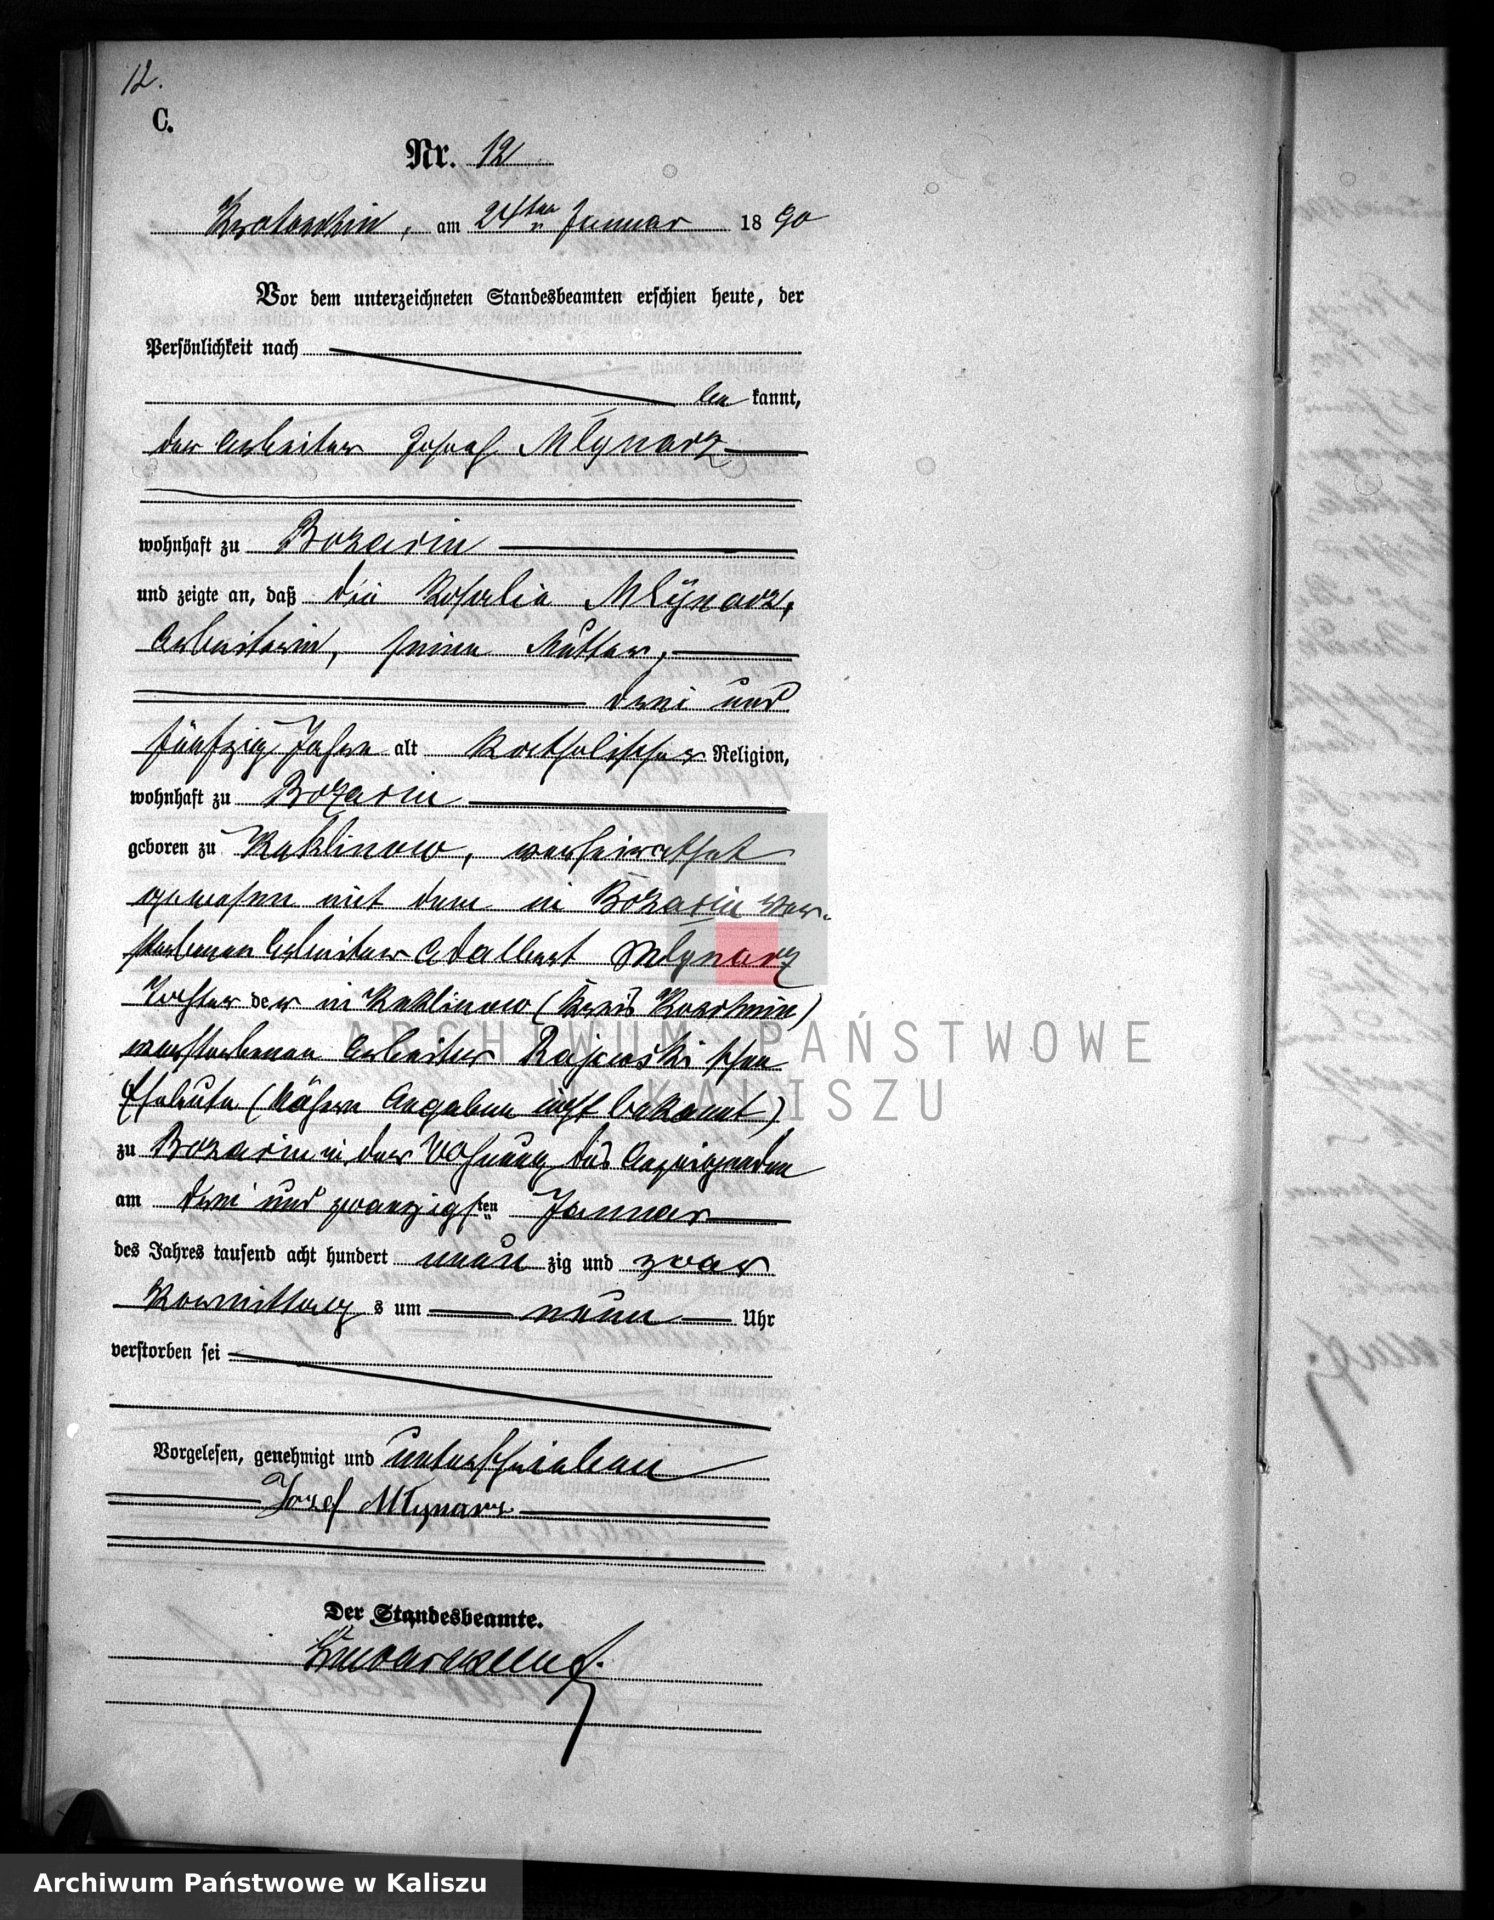 12.
C.
Nr. 12
Krotoschin, am 24ten Januar 1890
Vor dem unterzeichneten Standesbeamten erschien heute, der
Persönlichkeit nach
be kannt,
der Arbeiter Josef Mlynarz
wohnhaft zu Bozacin
und zeigte an, daß die Rosalia Mlynarz,
Arbeiterin, seine Mutter,
drei und
fünfzig Jahre alt katholischer Religion,
wohnhaft zu Bozacin
geboren zu Kaklinow, verheirathet
gewesen mit dem in Bozacin ver-
storbenen Arbeiter Adalbert Mlynarz
Tochter der in Kaklinow (Kreis Koschmin)
verstorbenen Arbeiter Rajewski schen
Eheleute (nähere Angaben nicht bekannt)
zu Bozacin in der Wohnung des Anzeigenden
am drei und zwanzigsten Januar
des Jahres tausend acht hundert neun zig und zwar
Vormittag s um neun Uhr
verstorben sei
Vorgelesen, genehmigt und unterschrieben
Jozef Mlynarz
Der Standesbeamte.
ARCHIWUM PAŃSTWOWE
W KALISZU
Archiwum Państwowe w Kaliszu